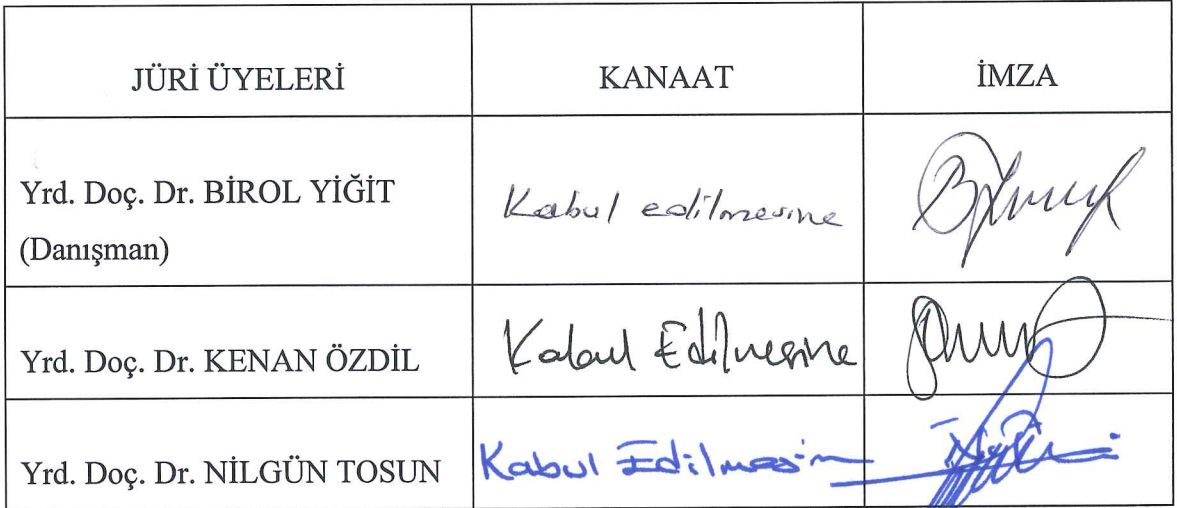 JÜRİ ÜYELERİ KANAAT İMZA
Yrd. Doç. Dr. BİROL YİĞİT
(Danışman)
Kabul edilmesine
Yrd. Doç. Dr. KENAN ÖZDİL Kabul Edilmesine
Yrd. Doç. Dr. NİLGÜN TOSUN Kabul Edilmesin